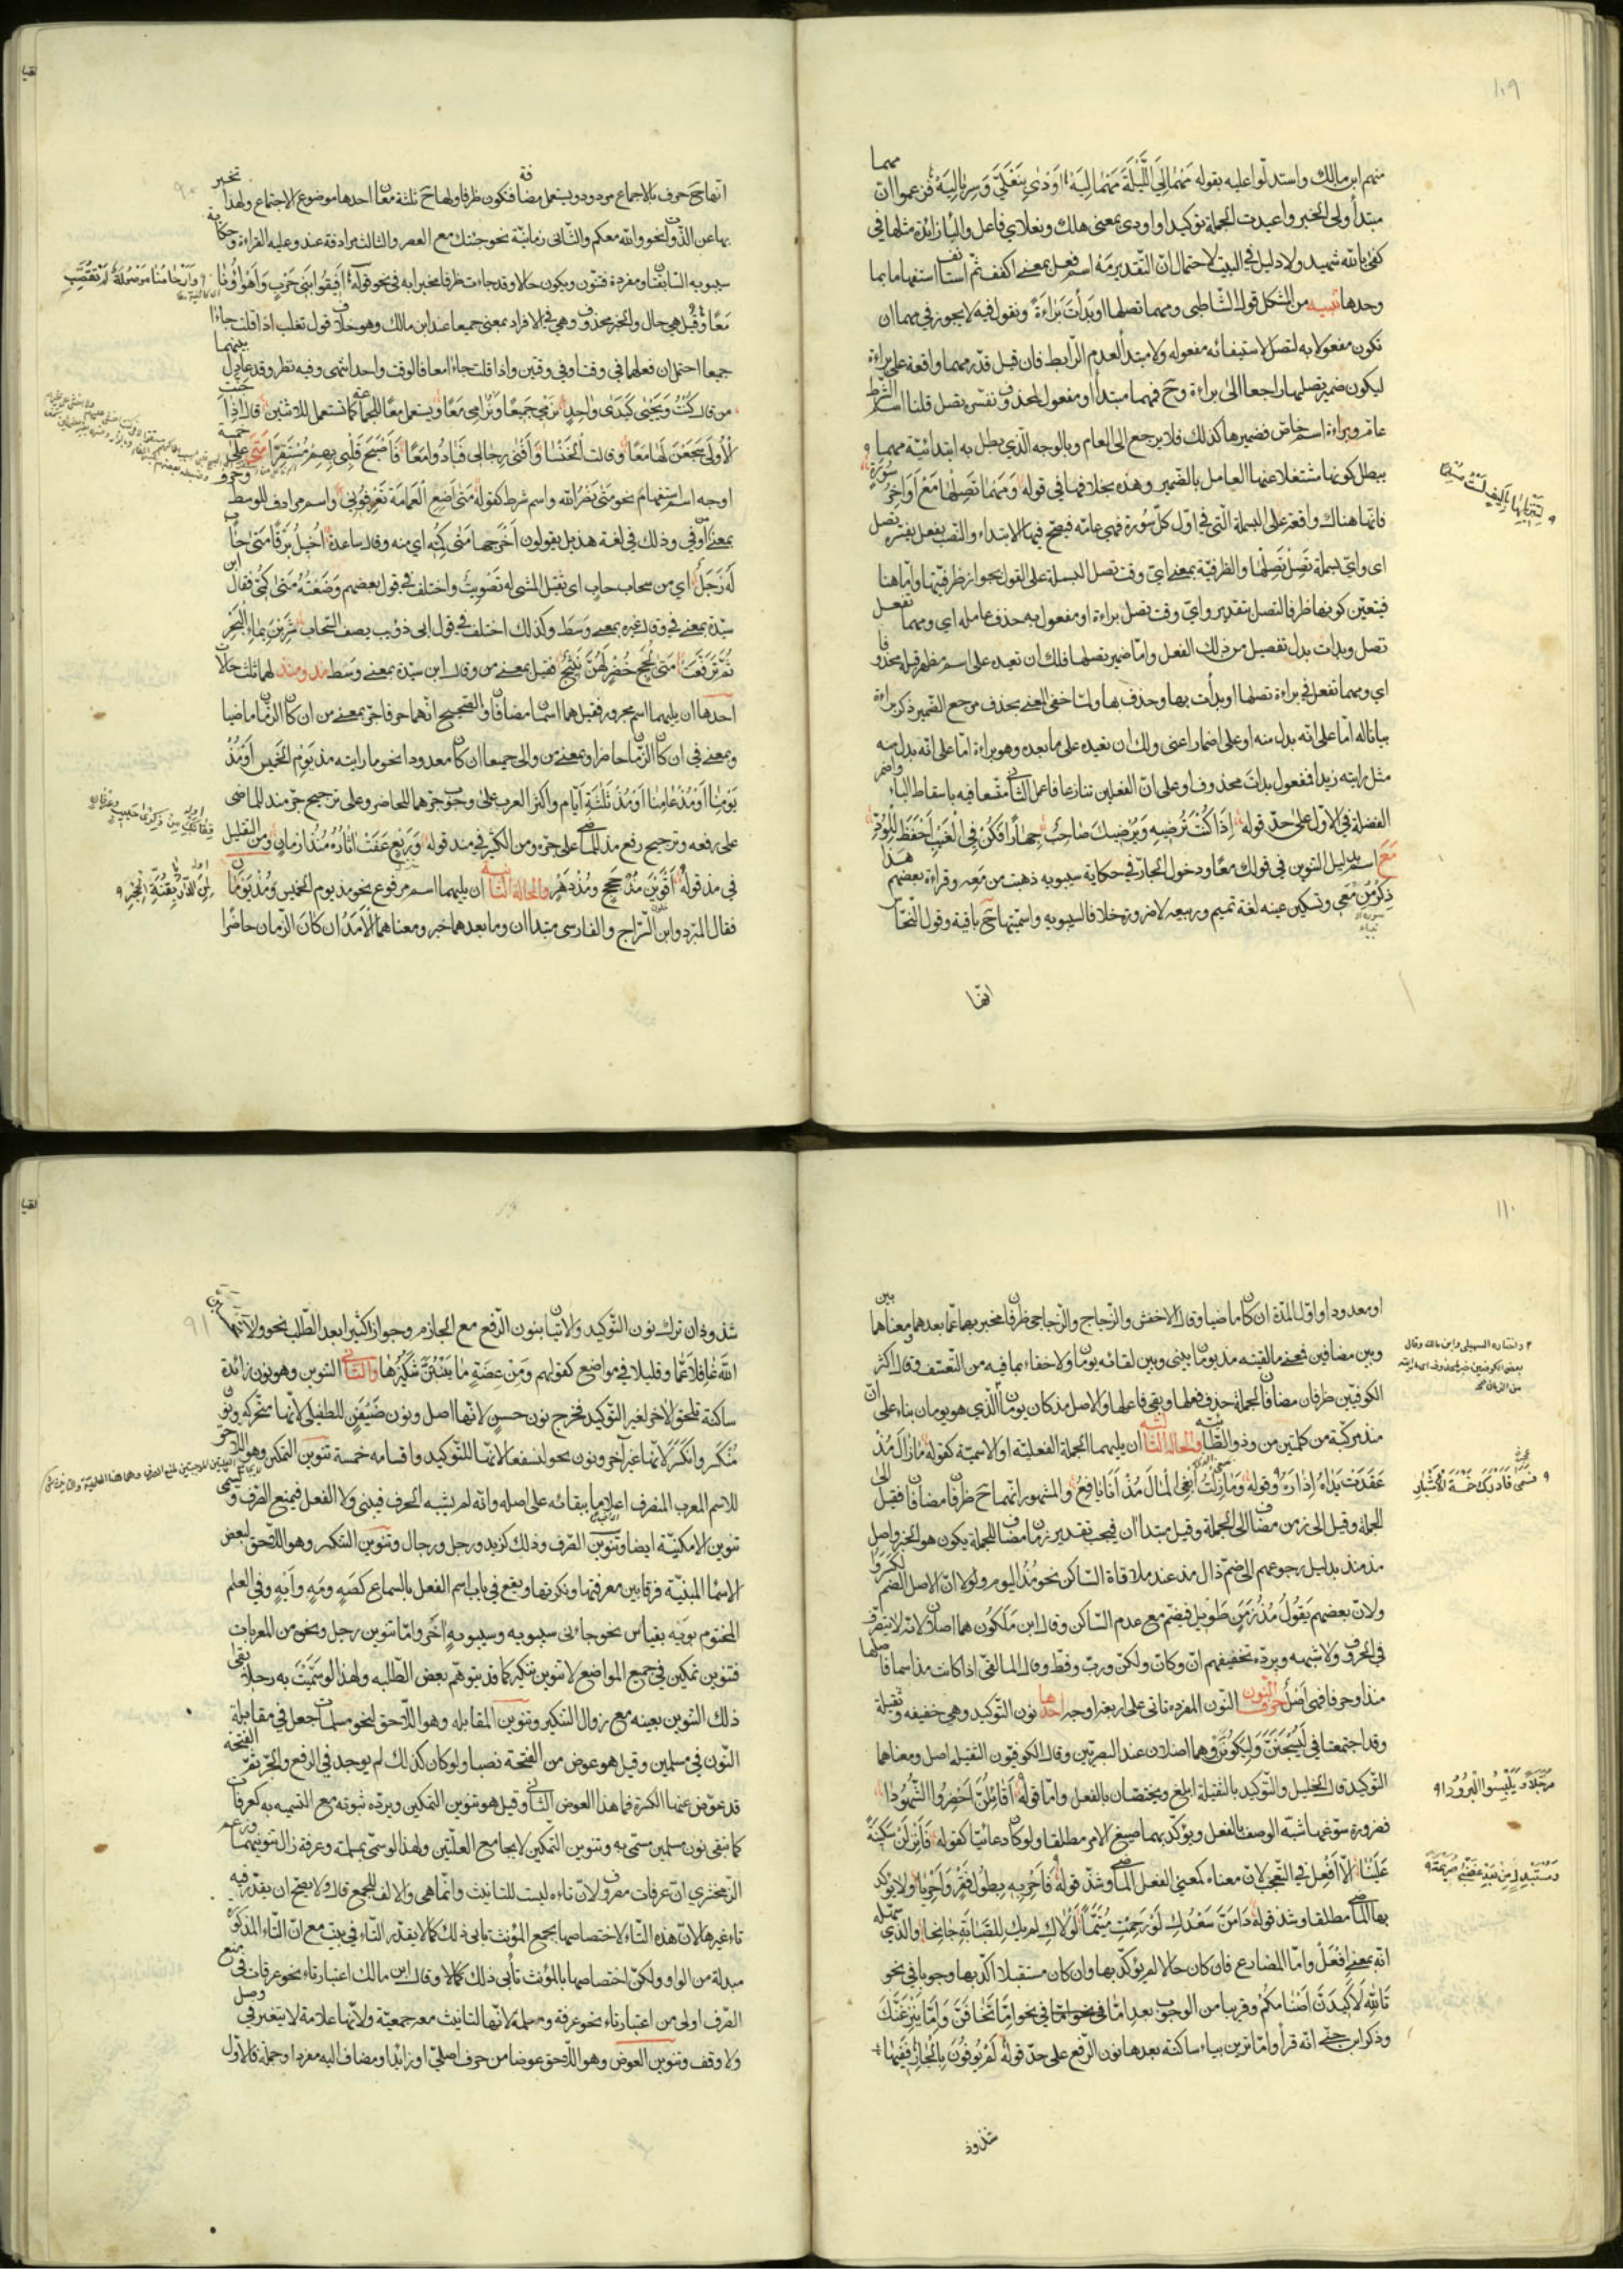 ١٠٩
منهم ابن مالك واستدلوا عليه بقوله مَهْمَا لِيَ اللَّيْلَةَ مَهْمَا لِيَهْ اَوْدٰى بِنَعْلَيَّ وَسِرْبَالِيَهْ فزعموا انّ مهما
مبتدأ ولى الخبر واعيدت الجملة توكيدا واودى بمعنى هلك وبنعلاي فاعل والباء زائدة مثلها في
كفى بالله شهيد ولا دليل في البيت لاحتمال انّ التقدير مه اسم فعل بمعنى اكفف ثم استانف استفهاما بما
وحدها تنبيه من المشكل قول الشاطبى ومهما تصلها او بدأت براءة ونقول فيه لا يجوز في مهما ان
تكون مفعولا به لتصل لاستيفائه مفعوله ولا مبتدأ لعدم الرابط فان قيل قدر مهما واقعة على براءة
ليكون ضمير تصلها راجعا الى براءة وح فمهما مبتدأ او مفعول لمحذوف نفسره تصل قلنا اسم الشرط
عام وبراءة اسم خاص فضميرها كذلك فلا يرجع الى العام وبالوجه الذي بطل به ابتدائية مهما
يبطل كونها مشتغلا عنها العامل بالضمير وهذه بخلافها في قوله وَمَهْمَا تَصِلْهَا مَعْ اَوَاخِرِ سُورَةٍ
فانها هناك واقعة على البسملة التي في اول كل سورة فهي عامة فيصح فيها الابتداء والنصب بفعل يفسره تصل
اى واىّ بسملة تَصِلْ تَصِلْهَا والظرفية بمعنى اىّ وقت تصل البسملة على القول بجواز ظرفيتها واما هنا
فيتعين كونها ظرفا لتصل بتقدير واىّ وقت تصل براءة او مفعول به حذف عامله اي ومهما تفعل
تصل وبدأت بدل تفصيل من ذلك الفعل واما ضمير تصلها فلك ان تعيده على اسم مظهر قبله محذوفا
اي ومهما تفعل في براءة تصلها او بدأت بها وحذف بها ولما خفي المعنى بحذف مرجع الضمير ذكر براءة
بيانا له اما على انه بدل منه او على اضمار اعنى ولك ان تعيده على ما بعده وهو براءة اما على انه بدل منه
مثل رايته زيدا فمفعول بدأت محذوف او على ان الفعلين تنازعا فاعمل الثانى متسعا فيه باسقاط الباء واضمر
الفضلة في الاول على حد قوله اِذَا كُنْتَ تُرْضِيهِ وَيُرْضِيكَ صَاحِبٌ جِهَارًا فَكُنْ فِي الْغَيْبِ اَحْفَظَ لِلْوُدِّ
مَعَ اسم بدليل التنوين في قولك معًا ودخول الجار في حكاية سيبويه ذهبت من مَعِه وقراءة بعضهم هذا
ذِكْرُ مِنْ مَعِي وتسكين عينه لغة تميم وربيعه لا ضرورة خلافا لسيبويه واسميتها ح باقية وقول النحاس
انها
انّها ح حرف بالاجماع مردود ويستعمل مضافة فتكون ظرفا ولها ح ثلثة معان احدها موضع الاجتماع ولهذا تخبر
بها عن الذوات نحو والله معكم والثانى زمانه نحو جئتك مع العصر والثالث مرادفة عند وعليه القراءة وحكاية
سيبويه السابقتان ومفردة فتنون ويكون حالا وقد جاءت ظرفا مخبرا به في نحو قوله اَفِيقُوا بَنِي حَرْبٍ وَاَهْوَاؤُنَا
مَعًا وقيل هي حال والخبر محذوف وهي في الافراد بمعنى جميعا عند ابن مالك وهو خلاف قول ثعلب اذا قلت جاءا
جميعا احتمل ان فعلهما في وقت او في وقتين واذا قلت جاءا معا فالوقت واحد انتهى وفيه نظر وقد عادل بينهما
من قال كُنْتُ وَيَحْيَى كَيَدَى وَاحِدٍ نَرْمِى جَمِيعًا وَنُرَامَى مَعًا ويستعمل معًا للجماعة كما تستعمل للاثنين قال اِذَا حَنَّتِ
الْاُولٰى سَجَعْنَ لَهَا مَعًا وقالت الخنسا وَاَفْنٰى رِجَالِى فَبَادُوا مَعًا فَاَصْبَحَ قَلْبِى بِهِمْ مُسْتَفَزًّا مَتٰى على خمسة
اوجه اسم استفهام نحو متى نصر الله واسم شرط كقوله مَتٰى اَضَعِ الْعَمَامَةَ تَعْرِفُونِى واسم مرادف للوسط وحرف
بمعنى من او في وذلك في لغة هذيل يقولون اَخْرَجَهَا مَتٰى كُمِّهِ اى منه وقال ساعدة اُخِيلُ بَرْقًا مَتٰى حَابٍ
لَهُ زَجَلٌ اي من سحاب حاب اى ثقيل المشي له تَصْوِيتٌ واختلف في قول بعضهم وَضَعْتُهُ مَتٰى كُمِّى فقال ابن
سيده بمعنى في وقال غيره بمعنى وسَط وكذلك اختلف في قول ابى ذؤيب يصف السحاب شَرِبْنَ بِمَاءِ الْبَحْرِ
ثُمَّ تَرَفَّعَتْ مَتٰى لُجَجٍ خُضْرٍ لَهُنَّ نَئِيجُ فقيل بمعنى من وقال ابن سيدة بمعنى وَسَط مذ ومنذ لهما ثلث حالات
احدها ان يليهما اسم مجرور فقيل هما اسمان مضافان والصحيح انهما حرفا جر بمعنى من ان كان الزمان ماضيا
وبمعنى في ان كان الزمان حاضرا وبمعنى من والى جميعا ان كان معدودا نحو ما رايته مذ يَوْمِ الْخَمِيسِ اَوْ مُذْ
يَوْمِنَا اَوْ مُذْ عَامِنَا اَوْ مُذْ ثَلٰثَةِ اَيّام واكثر العرب على وجوب جرّهما للحاضر وعلى ترجيح جر منذ للماضى
على رفعه وترجيح رفع مذ للماضى على جره ومن الكثير في منذ قوله وَرَبْعٍ عَفَتْ اٰثَارُهُ مُنْذُ اَزْمَانِ ومن القليل
في مذ قوله اَقْوَيْنَ مُذْ حِجَجٍ وَمُذْ دَهْرِ والحالة الثانية ان يليهما اسم مرفوع نحو مذ يوم الخميس ومُنْذُ يَوْمَانِ
فقال المبرد وابن السراج والفارسى مبتدأان وما بعدهما خبر ومعناهما الْاَمَدُ ان كان الزمان حاضرًا
١١٠
او معدودا واول المدة ان كان ماضيا وقال الاخفش والزجاج والزجاجى ظرفان مخبر بهما عما بعدهما ومعناهما بين
وبين مضافين فمعنى ما لقيته مذ يومان بينى وبين لقائه يومان ولا خفاء بما فيه من التعسف وقال اكثر
الكوفيين ظرفان مضافان لجملة حذف فعلها وبقي فاعلها والاصل مذ كان يومان او مذ الذي هو يومان بناء على انّ
منذ مركبة من كلمتين من وذو الطائية والحالة الثالثة ان يليهما الجملة الفعلية او الاسمية كقوله مَازَالَ مُذْ
عَقَدَتْ يَدَاهُ اِزَارَهُ وقوله وَمَازِلْتُ اَبْغِى الْمَالَ مُذْ اَنَا يَافِعٌ والمشهور انهما ح ظرفان مضافان فقيل الى
الجملة وقيل الى زمن مضاف الى الجملة وقيل مبتدأان فيجب تقدير زمان مضاف للجملة يكون هو الخبر واصل
مذ منذ بدليل رجوعهم الى ضم ذال مذ عند ملاقاة الساكن نحو مُذُ اليوم ولولا انّ الاصل الضم لكسروا
ولان بعضهم يَقُولُ مُذُ زَمَنٍ طَوِيل فيضم مع عدم الساكن وقال ابن مَلَكُون هما اصلان لانه لا يتصرف
في الحروف ولا شبهه ويرده تخفيفهم انّ وكانّ ولكنّ وربّ وقطّ وقال المالقى اذا كانت مذ اسما فاصلها
منذ او حرفا فهى اَصْل حرف النون النون المفردة تاتى على اربعة اوجه احدها نون التوكيد وهى خفيفه وثقيلة
وقد اجتمعتا في لَيُسْجَنَنَّ وَلِيَكُونًا وهما اصلان عند البصريين وقال الكوفيون الثقيله اصل ومعناهما
التوكيد قال الخليل والتوكيد بالثقيلة ابلغ ويختصان بالفعل واما قوله اَقَائِلُنَّ اَحْضِرُوا الشُّهُودَا
فضرورة سوّغها شبه الوصف بالفعل ويؤكد بهما صيغ الامر مطلقا ولو كان دعائيا كقوله فَاَنْزِلَنْ سَكِينَةً
عَلَيْنَا الا اَفْعِل في التعجب لانّ معناه كمعنى الفعل الماضى وشذّ قوله فَاَحْرِ بِهِ بِطُولِ فَقْرٍ وَاَحْرِيَا ولا يؤكد
بها الماضى مطلقا وشذ قوله دَامَنَّ سَعْدُكِ لَوْ رَحِمْتِ مُتَيَّمًا لَوْلَاكِ لم يك لِلصَّبَابَةِ جَانِحَا والذي سهله
انه بمعنى اِفعل واما المضارع فان كان حالا لم يؤكد بها وان كان مستقبلا اكّد بها وجوبا في نحو
تَاللهِ لَاَكِيدَنَّ اَصْنَامَكُمْ وقريبا من الوجوب بعد اما في نحو اِمَّا تَخَافَنَّ وَاِمَّا يَنْزَغَنَّكَ
وذكر ابن جنى انه قرأ واما ترين بياء ساكنة بعدها نون الرفع على حد قوله لَمْ يُوفُونَ بِالْجَارِ فَفِيهَا
شذوذ
شذوذان ترك نون التوكيد ولاثبات نون الرفع مع الجازم وجوازا كثيرا بعد الطلب نحو ولا تحسبن
اللهَ غَافِلًا عَمَّا وقليلا في مواضع كقولهم وَمِنْ عِضَةٍ مَا يَنْبُتَنَّ شَكِيرُهَا والثانى التنوين وهو نون زائدة
ساكنة تلحق الاخر لغير التوكيد فخرج نون حسن لانها اصل ونون ضَيْفَنٍ للطفيلى لانها متحركه ونون
مُنْكَسِر وَانْكَسَر لانها غير آخر ونون نحو لنسفعا لانها للتوكيد واقسامه خمسة تنوين التمكين وهو اللاحق
للاسم المعرب المنصرف اعلاما ببقائه على اصله وانه لم يشبه الحرف فيبنى ولا الفعل فيمنع الصرف ويسمى
تنوين الامكنية ايضا وتنوين الصرف وذلك كزيد ورجل ورجال وتنوين التنكير وهو اللاحق لبعض
الاسماء المبنية فرقا بين معرفتها ونكرتها ويقع في باب اسم الفعل بالسماع كصَهٍ ومَهٍ واَيْهٍ وفي العلم
المختوم بوَيْه بقياس نحو جاءنى سيبويه وسيبويهٍ آخر واما تنوين رجل ونحوه من المعربات
فتنوين تمكين في جميع المواضع لا تنوين تنكير كما قد يتوهّم بعض الطلبه ولهذا لو سَمَّيْتَ به رجلا بقى
ذلك التنوين بعينه مع زوال التنكير وتنوين المقابله وهو اللاحق لنحو مسلمات جعل في مقابلة
النون في مسلمين وقيل هو عوض من الفتحة نصبا ولو كان كذلك لم يوجد في الرفع والجر ثم الفتحة
قد عوّض عنها الكسرة فما هذا العوض الثانى وقيل هو تنوين التمكين ويرده ثبوته مع التسميه به كعرفات
كما تبقى نون مسلمين مسمى به وتنوين التمكين لا يجامع العلتين ولهذا لو سمى بمسلمة وعرفة زال تنوينهما وزعم
الزمخشري انّ عرفات مصروف لانّ تاءه ليست للتانيث وانما هى والالف للجمع قال ولا يصح ان يقدر فيه
تاء غيرها لانّ هذه التاء لاختصاصها بجمع المؤنث تابى ذلك كما لا يقدر التاء في بنت مع انّ التاء المذكورة
مبدلة من الواو ولكنّ اختصاصها بالمؤنث تأبى ذلك كمالا وقال ابن مالك اعتبار تاء نحو عرفات في منع
الصرف اولى من اعتبار تاء نحو عرفة ومسلمة لانها لتانيث معه جمعيّة ولانها علامة لا يتغير في وصل
ولا وقف وتنوين العوض وهو اللاحق عوضا من حرف اصلى او زائد او مضاف اليه مفردا وجملة فالاول